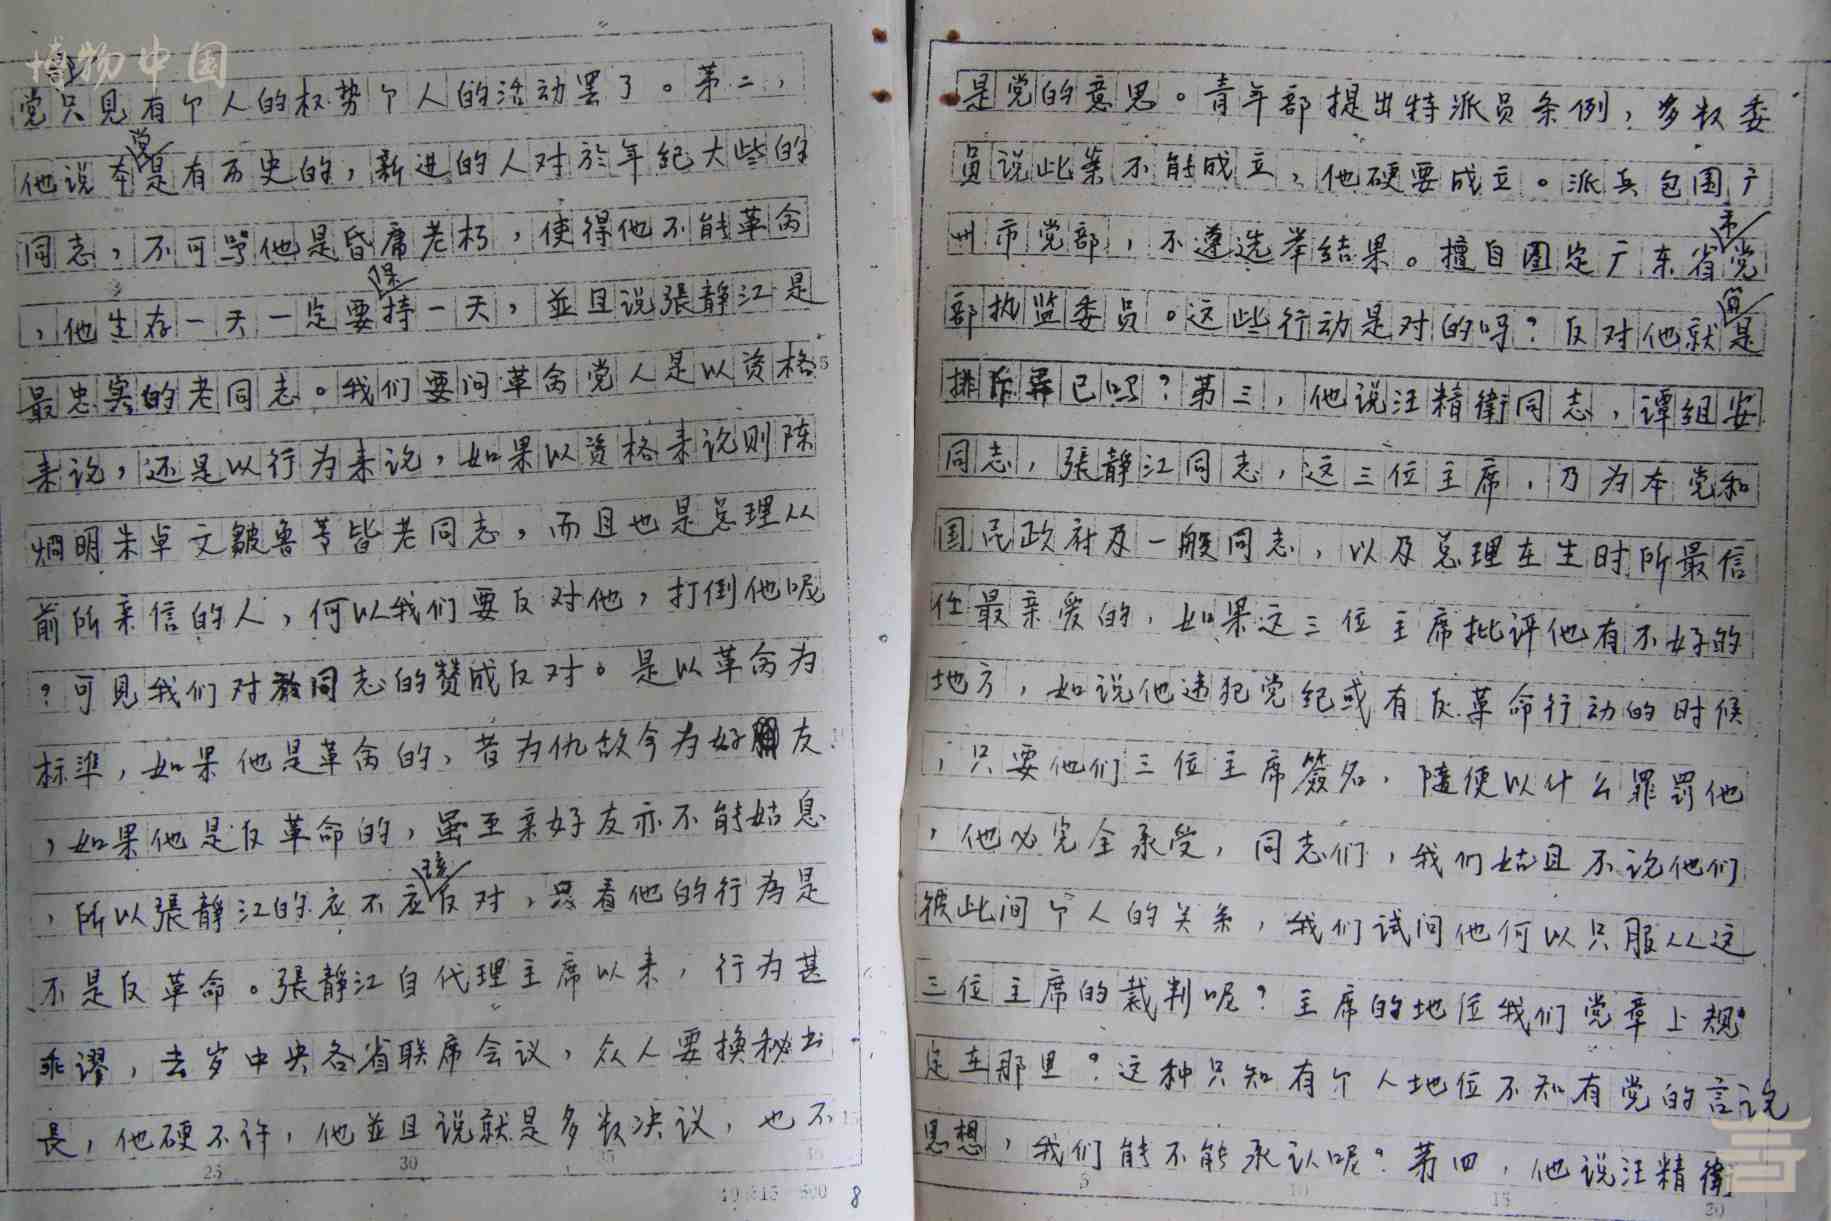 博物中国
党只见有个人的权势个人的活动罢了。第二，
他说本党是有历史的，新进的人对於年纪大些的
同志，不可骂他是昏庸老朽，使得他不能革命
，他生存一天一定要保持一天，並且说張静江是
最忠实的老同志。我们要问革命党人是以资格
来说，还是以行为来说，如果以资格来说则陈
炯明朱卓文皷鲁等皆老同志，而且也是总理从
前所亲信的人，何以我们要反对他，打倒他呢
？可见我们对于同志的赞成反对。是以革命为
标準，如果他是革命的，昔为仇敌今为好朋友
，如果他是反革命的，虽至亲好友亦不能姑息
，所以張静江的应不应该反对，只看他的行為是
不是反革命。張静江自代理主席以来，行为甚
乖谬，去岁中央各省联席会议，众人要换秘书
長，他硬不许，他並且说就是多数决议，也不
25 30 35
8
是党的意思。青年部提出特派员条例，多数委
員说此案不能成立，他硬要成立。派兵包围广
州市党部，不遵选举结果。擅自圈定广东省市党
部执监委员。这些行动是对的吗？反对他就算是
排斥異已吗？第三，他说汪精衛同志，谭组安
同志，張静江同志，这三位主席，乃为本党和
国民政府及一般同志，以及总理在生时所最信
任最亲爱的，如果这三位主席批评他有不好的
地方，如说他违犯党纪或有反革命行动的时候
，只要他们三位主席簽名，随便以什么罪罰他
，他必完全承受，同志们，我们姑且不说他们
彼此间个人的关系，我们试问他何以只服从这
三位主席的裁判呢？主席的地位我们党章上规
定在那里？这种只知有个人地位不知有党的言说
思想，我们能不能承认呢？第四，他说汪精衛
5 10 15 20